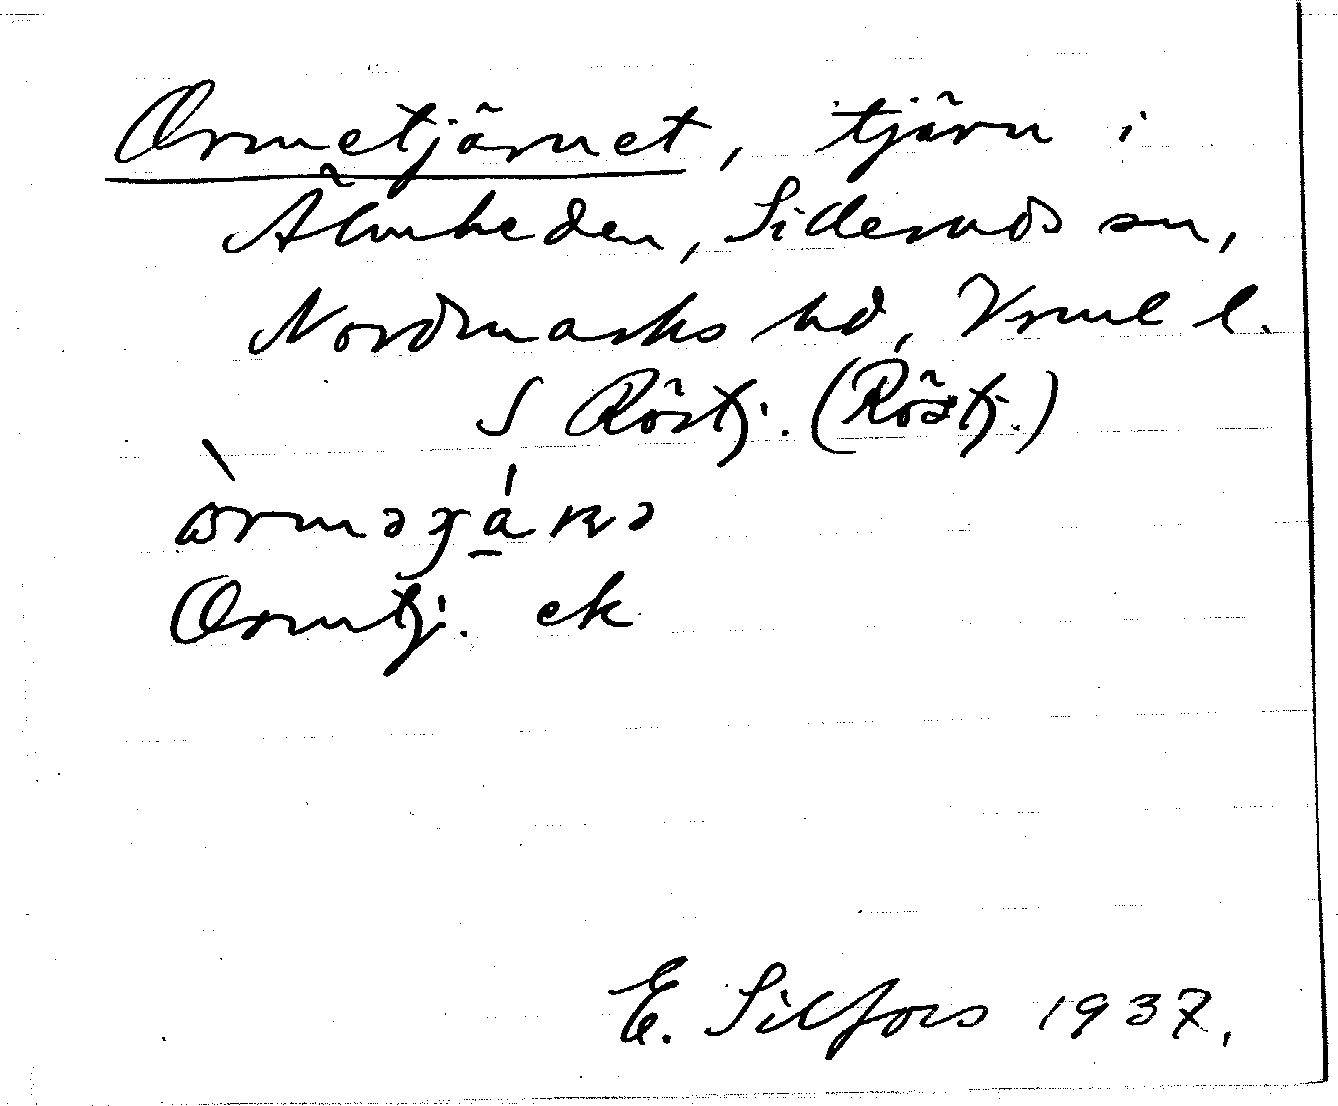 Ormetjärnet, tjärn i
Älmheden, Silleruds sn,
Nordmarks hd, Vrml l.
S Röstj. (Röstj.)
Ormtj. ek
E. Silfors 1937.